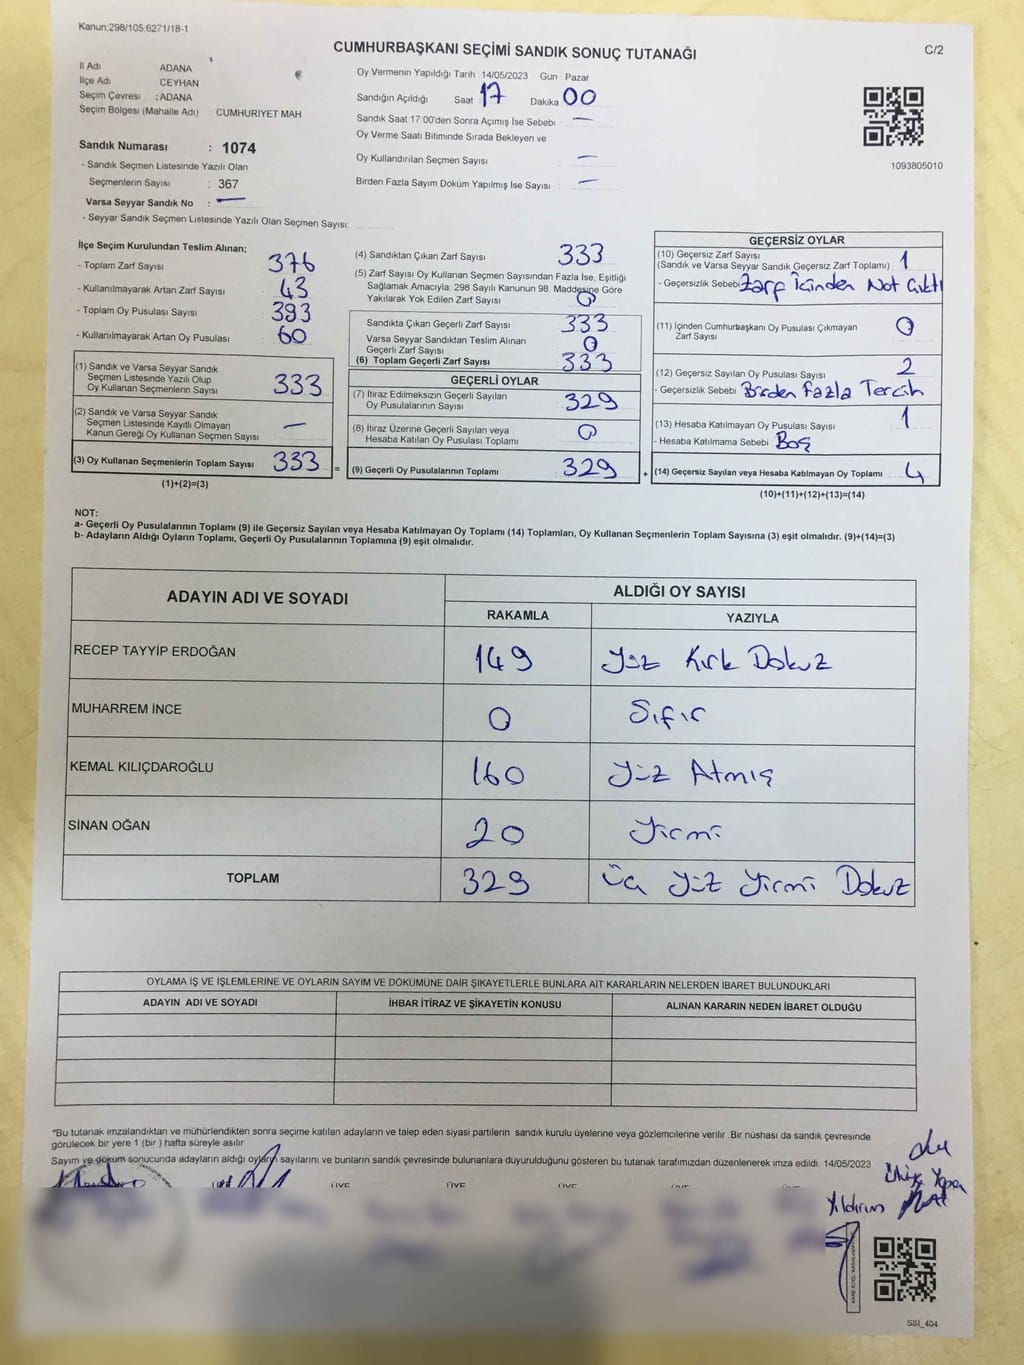 Kanun:298/105,6271/18-1
CUMHURBAŞKANI SEÇİMİ SANDIK SONUÇ TUTANAĞI
C/2
İl Adı ADANA
İlçe Adı CEYHAN
Seçim Çevresi :ADANA
Seçim Bölgesi (Mahalle Adı) : CUMHURIYET MAH
Sandık Numarası : 1074
- Sandık Seçmen Listesinde Yazılı Olan
Seçmenlerin Sayısı : 367
Varsa Seyyar Sandık No : —
- Seyyar Sandık Seçmen Listesinde Yazılı Olan Seçmen Sayısı:
Oy Vermenin Yapıldığı Tarih :14/05/2023 Gün Pazar
Sandığın Açıldığı Saat 17 Dakika 00
Sandık Saat 17:00'den Sonra Açımış İse Sebebi —
Oy Verme Saati Bitiminde Sırada Bekleyen ve
Oy Kullandırılan Seçmen Sayısı —
Birden Fazla Sayım Döküm Yapılmış İse Sayısı : —
1093805010
İlçe Seçim Kurulundan Teslim Alınan;
- Toplam Zarf Sayısı 376
- Kullanılmayarak Artan Zarf Sayısı : 43
- Toplam Oy Pusulası Sayısı : 393
- Kullanılmayarak Artan Oy Pusulası : 60
(1) Sandık ve Varsa Seyyar Sandık
Seçmen Listesinde Yazılı Olup
Oy Kullanan Seçmenlerin Sayısı : 333
(2) Sandık ve Varsa Seyyar Sandık
Seçmen Listesinde Kayıtlı Olmayan
Kanun Gereği Oy Kullanan Seçmen Sayısı : —
(3) Oy Kullanan Seçmenlerin Toplam Sayısı : 333 =
(1)+(2)=(3)
(4) Sandıktan Çıkan Zarf Sayısı 333
(5) Zarf Sayısı Oy Kullanan Seçmen Sayısından Fazla İse, Eşitliği
Sağlamak Amacıyla; 298 Sayılı Kanunun 98. Maddesine Göre
Yakılarak Yok Edilen Zarf Sayısı : 0
Sandıkta Çıkan Geçerli Zarf Sayısı : 333
Varsa Seyyar Sandıktan Teslim Alınan
Geçerli Zarf Sayısı : 0
(6) Toplam Geçerli Zarf Sayısı : 333
GEÇERLİ OYLAR
(7) İtiraz Edilmeksizin Geçerli Sayılan
Oy Pusulalarının Sayısı : 329
(8) İtiraz Üzerine Geçerli Sayılan veya
Hesaba Katılan Oy Pusulası Toplamı : 0
(9) Geçerli Oy Pusulalarının Toplamı : 329 +
GEÇERSİZ OYLAR
(10) Geçersiz Zarf Sayısı
(Sandık ve Varsa Seyyar Sandık Geçersiz Zarf Toplamı) : 1
- Geçersizlik Sebebi : Zarf İçinden Not Çıktı
(11) İçinden Cumhurbaşkanı Oy Pusulası Çıkmayan
Zarf Sayısı : 0
(12) Geçersiz Sayılan Oy Pusulası Sayısı : 2
- Geçersizlik Sebebi : Birden Fazla Tercih
(13) Hesaba Katılmayan Oy Pusulası Sayısı : 1
- Hesaba Katılmama Sebebi : Boş
(14) Geçersiz Sayılan veya Hesaba Katılmayan Oy Toplamı : 4
(10)+(11)+(12)+(13)=(14)
NOT:
a- Geçerli Oy Pusulalarının Toplamı (9) ile Geçersiz Sayılan veya Hesaba Katılmayan Oy Toplamı (14) Toplamları, Oy Kullanan Seçmenlerin Toplam Sayısına (3) eşit olmalıdır. (9)+(14)=(3)
b- Adayların Aldığı Oyların Toplamı, Geçerli Oy Pusulalarının Toplamına (9) eşit olmalıdır.
ADAYIN ADI VE SOYADI
ALDIĞI OY SAYISI
RAKAMLA YAZIYLA
RECEP TAYYİP ERDOĞAN 149 Yüz Kırk Dokuz
MUHARREM İNCE 0 Sıfır
KEMAL KILIÇDAROĞLU 160 Yüz Atmış
SİNAN OĞAN 20 Yirmi
TOPLAM 329 Üç Yüz Yirmi Dokuz
OYLAMA İŞ VE İŞLEMLERİNE VE OYLARIN SAYIM VE DÖKÜMÜNE DAİR ŞİKAYETLERLE BUNLARA AİT KARARLARIN NELERDEN İBARET BULUNDUKLARI
ADAYIN ADI VE SOYADI İHBAR İTİRAZ VE ŞİKAYETİN KONUSU ALINAN KARARIN NEDEN İBARET OLDUĞU
*Bu tutanak imzalandıktan ve mühürlendikten sonra seçime katılan adayların ve talep eden siyasi partilerin sandık kurulu üyelerine veya gözlemcilerine verilir .Bir nüshası da sandık çevresinde
görülecek bir yere 1 (bir ) hafta süreyle asılır
Sayım ve döküm sonucunda adayların aldığı oyların sayılarını ve bunların sandık çevresinde bulunanlara duyurulduğunu gösteren bu tutanak tarafımızdan düzenlenerek imza edildi. 14/05/2023
Yıldırım
SSİ_404